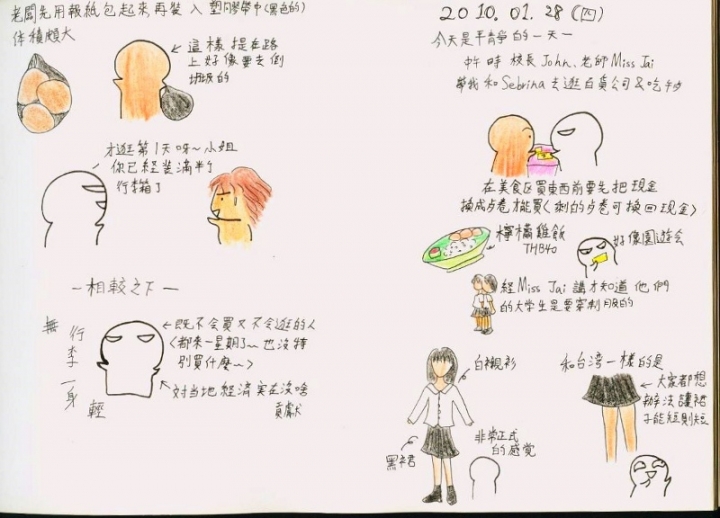 老闆先用報紙包起來再裝入塑膠帶中(黑色的)
体積頗大
←這樣提在路
上好像要去倒
垃圾的
才逛第1天呀~小姐
你已経装滿半了
行李箱了
—相較之下—
無行李一身輕
←既不会買又不会逛的人
(都來一星期了~也沒特
別買什麼~)
対当地経濟実在沒啥
貢獻
2010.01.28(四)
今天是平靜的一天—
中午時 校長John、老師Miss Jai
帶我和Sebrina去逛百貨公司&吃午
在美食区買東西前要先把現金
換成步卷才能買(剩的步卷可換回現金)
檸檬雞飯
THB40
好像園遊会
経Miss Jai講才知道他們
的大学生是要穿制服的
白襯衫
黑裙
非常正式
的感觉
和台湾一樣的是
←大家都想
辦法讓裙
子能短則短